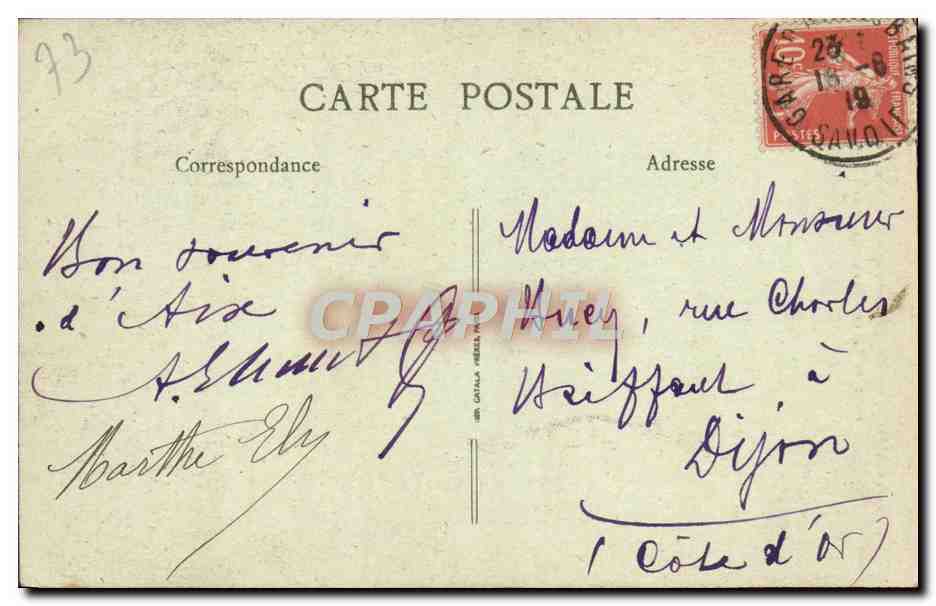 73
CARTE POSTALE
Correspondance
Adresse
10c
POSTES
GARE
BAINS
SAVOIE
23
16 - 8
19
Bon souvenir
d'Aix
Marthe Ely
CPAPHIL
IMP. CATALA FRÈRES, PARIS
Madame et Monsieur
Huey, rue Charles
à
Dijon
(Côte d'Or)